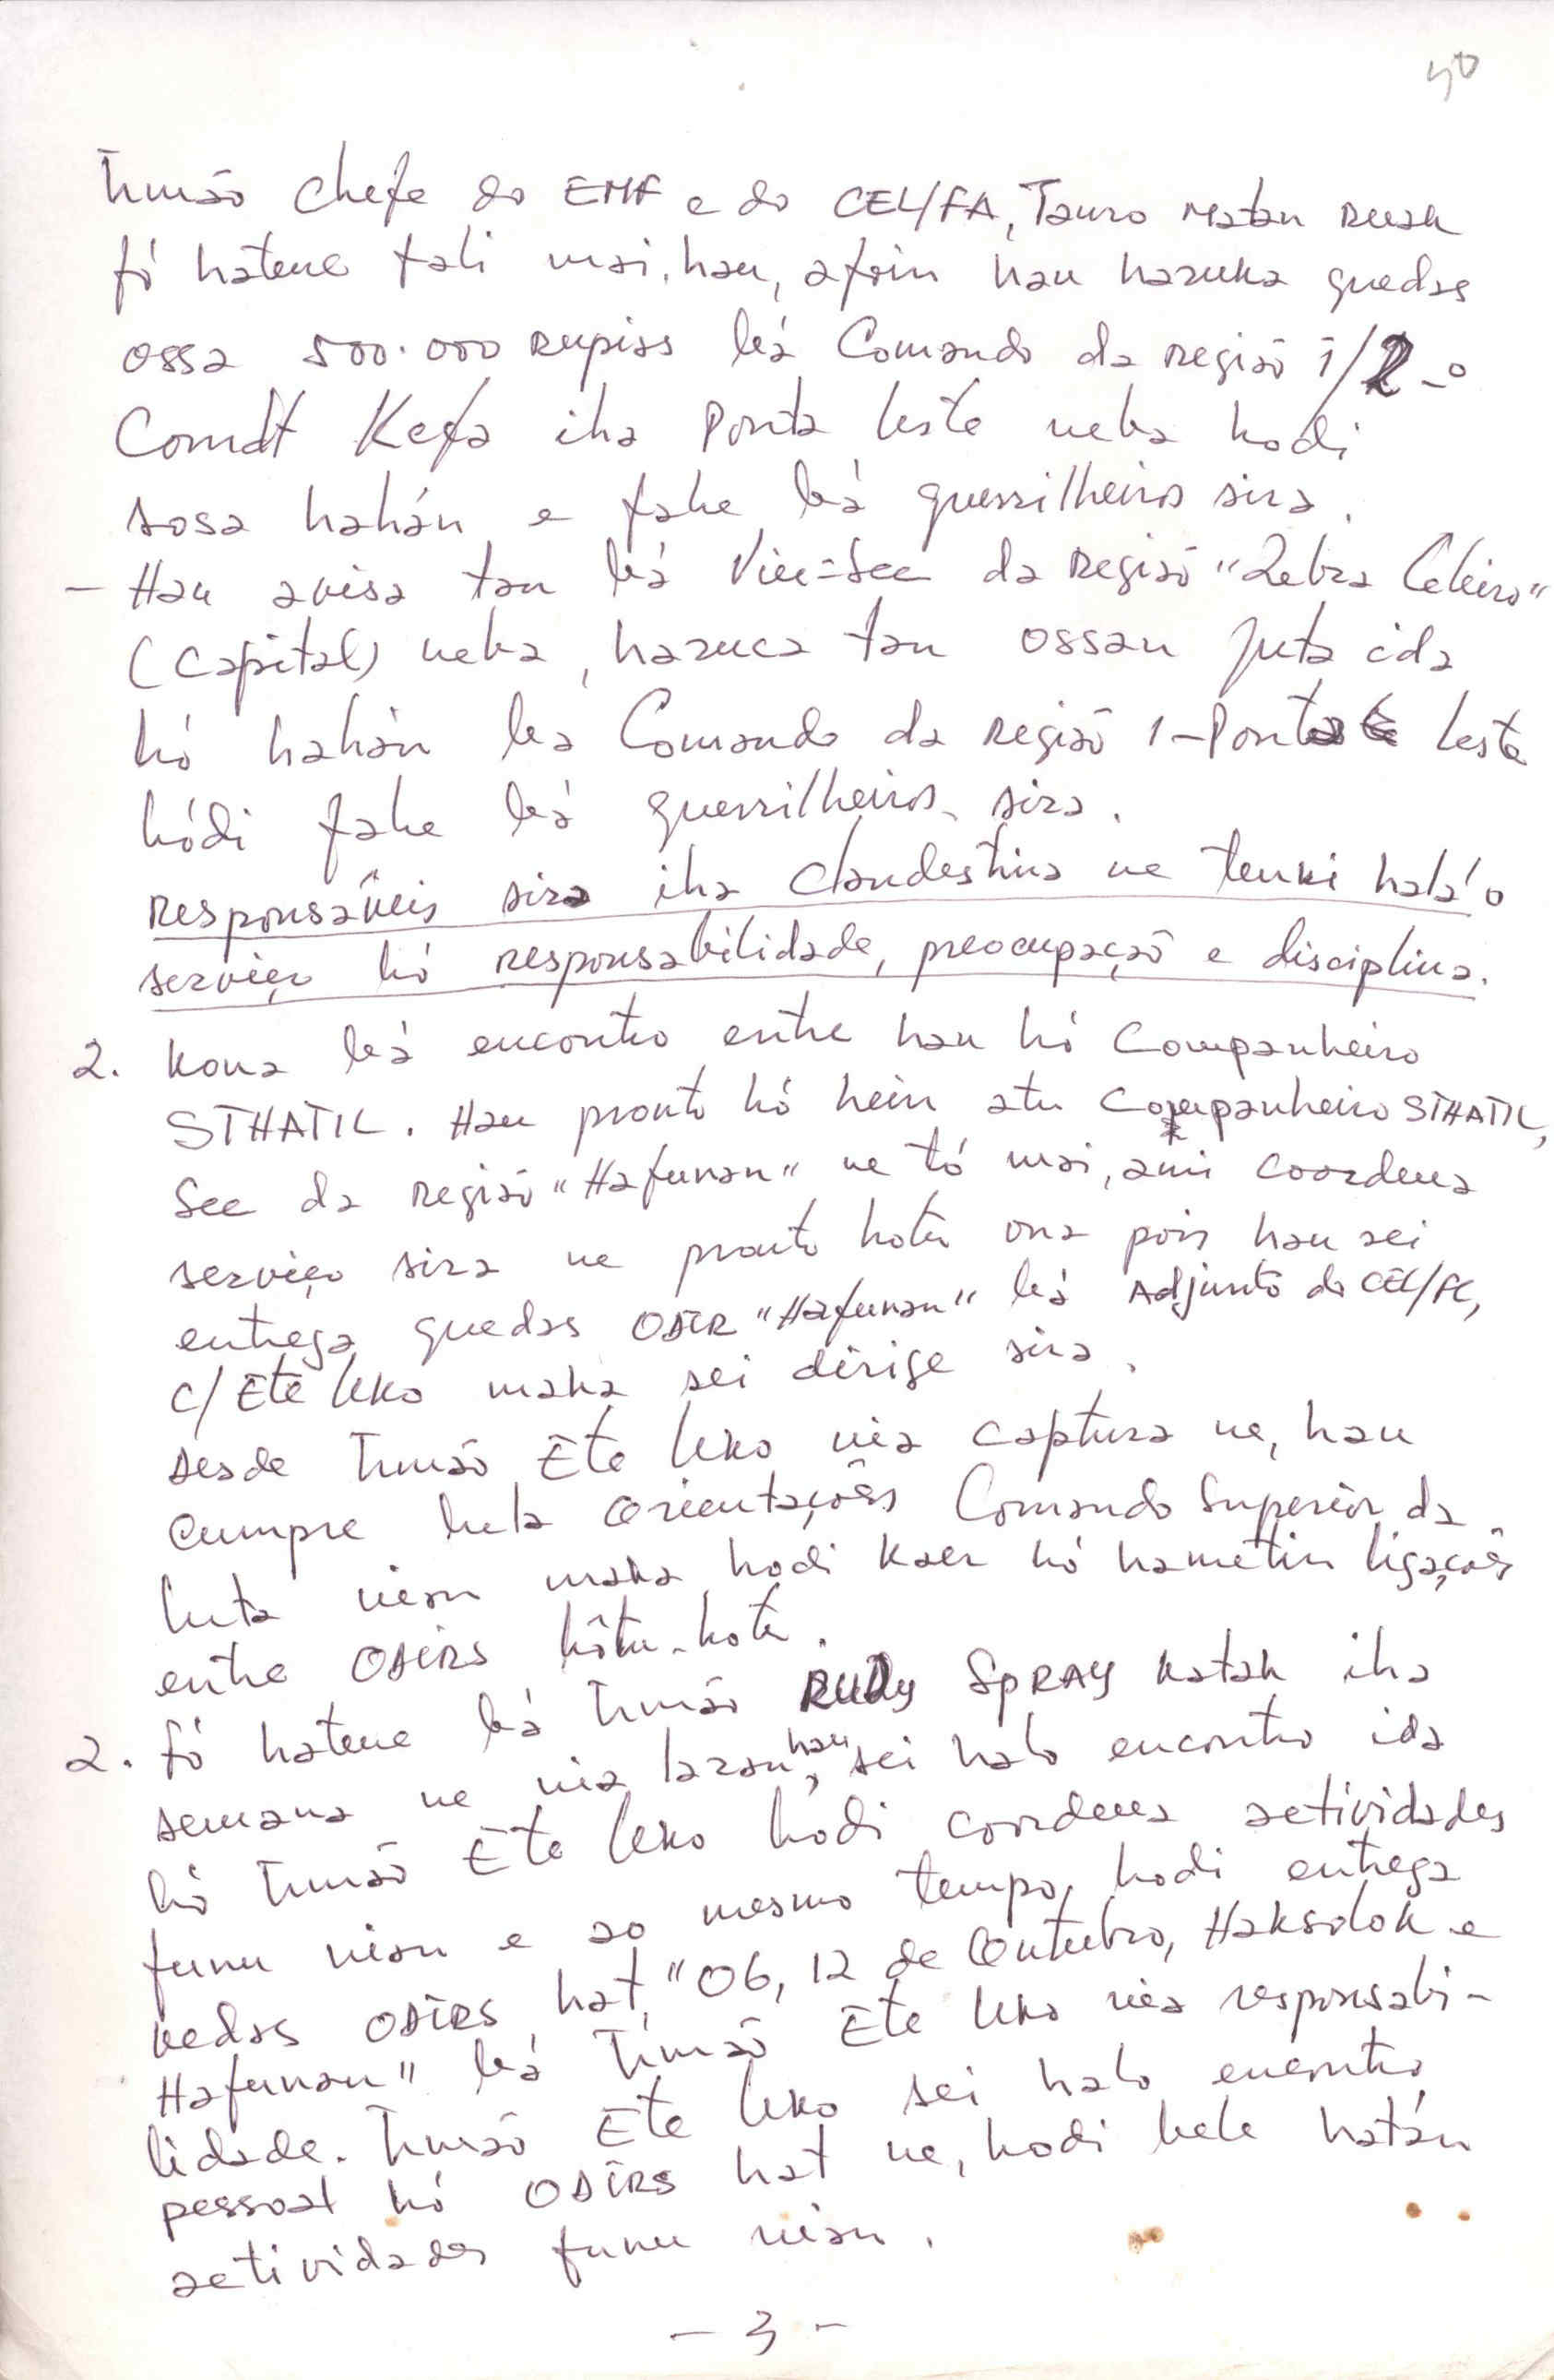 40
Irmão Chefe do EMF e do CEL/FA, Tauro Matan Ruak
fó hatene fali mai hau, afoin hau haruka guedas
ossa 500.000 Rupias bá Comando da Região 1/2 -
Comdt Kefa iha Ponta leste neba hodi
sosa hahán e fahe bá guerrilheiros sira.
- Hau avisa tan bá Vice-Sec da Região "Zebra Celeiro"
(Capital) neba, haruca tan ossan juta ida
hó hahán ba Comando da Região 1-Ponta leste
hódi fahe bá guerrilheiros sira.
Responsáveis sira iha clandestina ne tenki hala'o
serviço hó responsabilidade, preocupação e disciplina.
2. Kona bá encontro entre hau hó Companheiro
STHATIL. Hau pronto hó hein atu Companheiro STHATIL,
Sec da Região "Hafunan" ne tó mai, ami coordena
serviço sira ne pronto hotu ona pois hau sei
entrega guedas ODIR "Hafunan" bá Adjunto do CEL/FC,
C/ Ete Uko maka sei dirige sira.
Desde Irmão Ete Uko nia captura ne, hau
Cumpre buta Orientações Comando Superior da
luta nian maka hodi Kaer hó hametin ligações
entre ODIRS hôtu-hotu.
2. fó hatene bá Irmão RUDy SPRAY Katak iha
semana ne nia laran, hau sei halo encontro ida
hó Irmão Ete Uko hódi coordena actividades
funu nian e ao mesmo tempo, hodi entrega
kedas ODIRS hat, "06, 12 de Outubro, Haksolok e
Hafunan" bá Irmão Ete Uko nia responsabi-
lidade. Irmão Ete Uko sei halo encontro
pessoal hó ODIRS hat ne, hodi bele hatán
actividades funu nian.
- 3 -